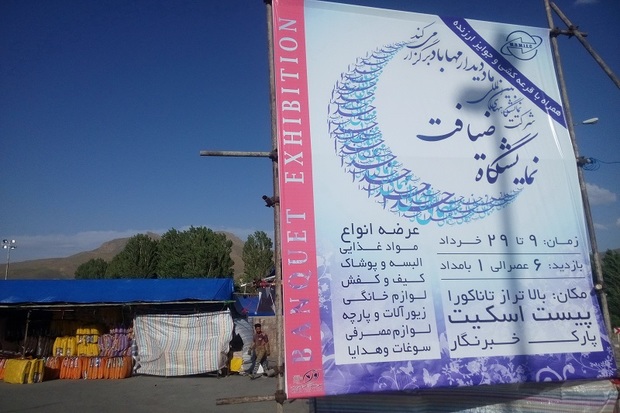 BANQUET EXHIBITION
همراه با قرعه کشی و جوایز ارزنده
شرکت نمایشگاه
مادیدار مهاباد برگزار می کند
نمایشگاه ضیافت
عرضه انواع
مواد غذایی
البسه و پوشاک
کیف و کفش
لوازم خانگی
زیورآلات و پارچه
لوازم مصرفی
سوغات وهدایا
زمان: ۹ تا ۲۹ خرداد
بازدید: ۶ عصرالی ۱ بامداد
مکان: بالا تر از تاناکورا
پیست اسکیت
پارک خبرنگار